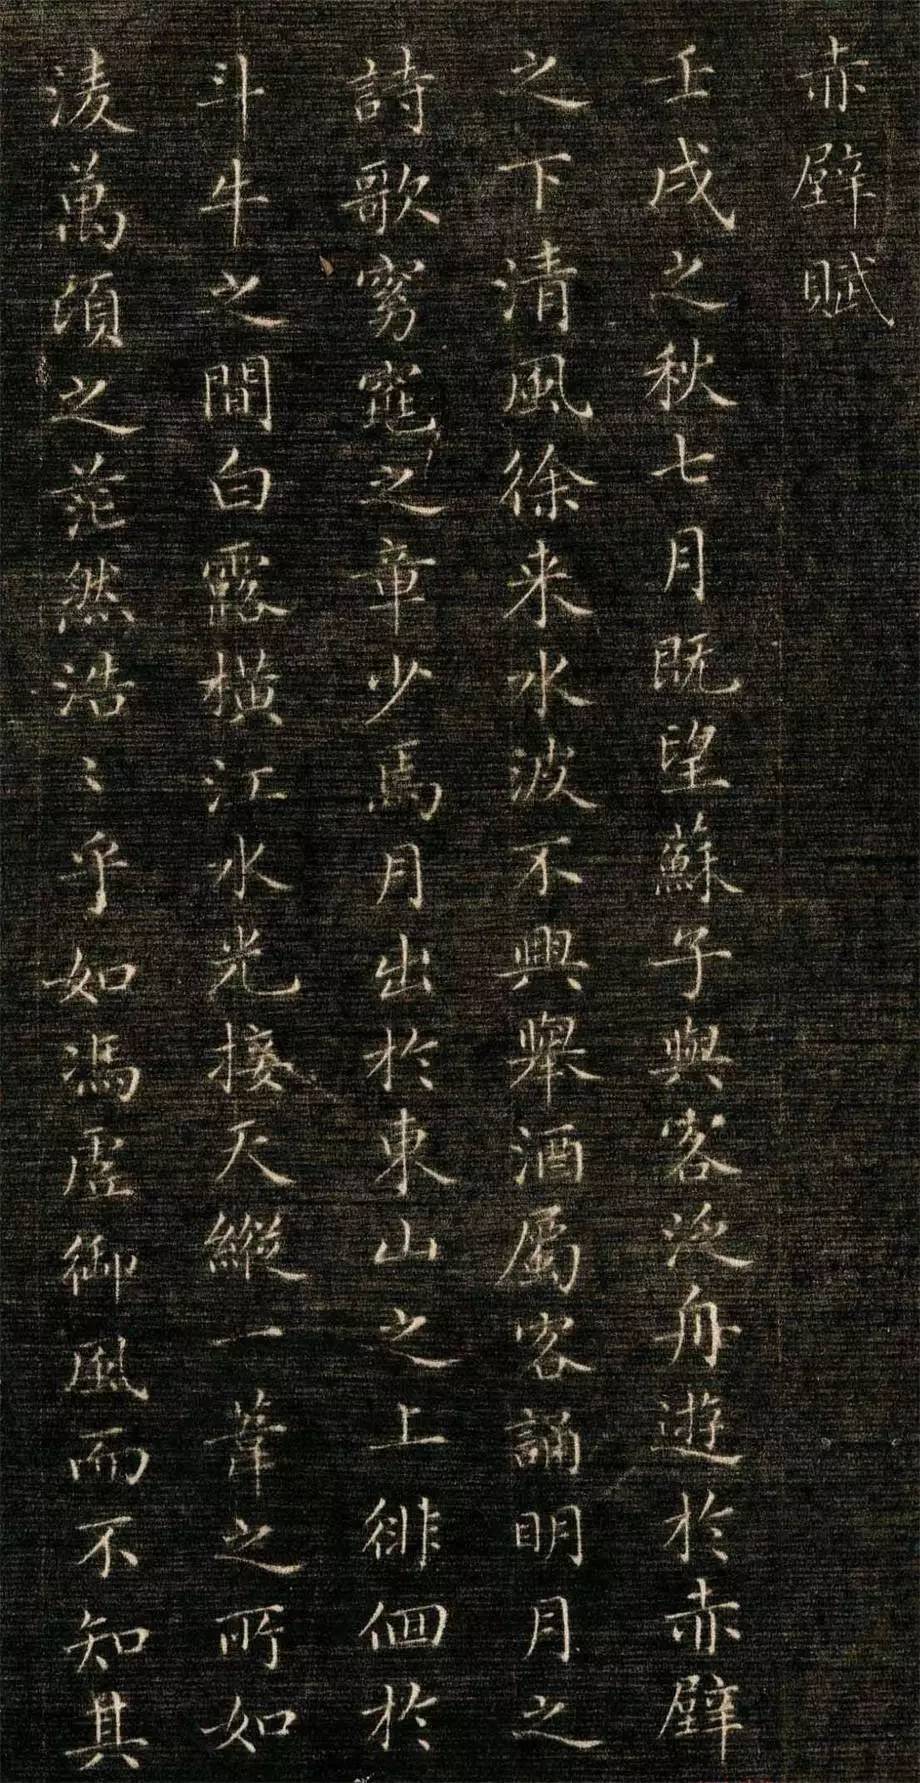 赤壁賦
壬戌之秋七月既望蘇子與客泛舟遊於赤壁
之下清風徐来水波不興舉酒屬客誦明月之
詩歌窈窕之章少焉月出於東山之上徘徊於
斗牛之間白露横江水光接天縱一葦之所如
淩萬頃之茫然浩〻乎如馮虛御風而不知其